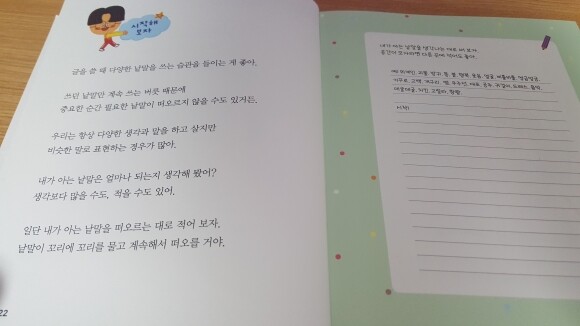 시작해
보자
글을 쓸 때 다양한 낱말을 쓰는 습관을 들이는 게 좋아.
쓰던 낱말만 계속 쓰는 버릇 때문에
중요한 순간 필요한 낱말이 떠오르지 않을 수도 있거든.
우리는 항상 다양한 생각과 말을 하고 살지만
비슷한 말로 표현하는 경우가 많아.
내가 아는 낱말은 얼마나 되는지 생각해 봤어?
생각보다 많을 수도, 적을 수도 있어.
일단 내가 아는 낱말을 떠오르는 대로 적어 보자.
낱말이 꼬리에 꼬리를 물고 계속해서 떠오를 거야.
22
내가 아는 낱말을 생각나는 대로 써 보자.
공간이 모자라면 다른 곳에 적어도 좋아.
시작!